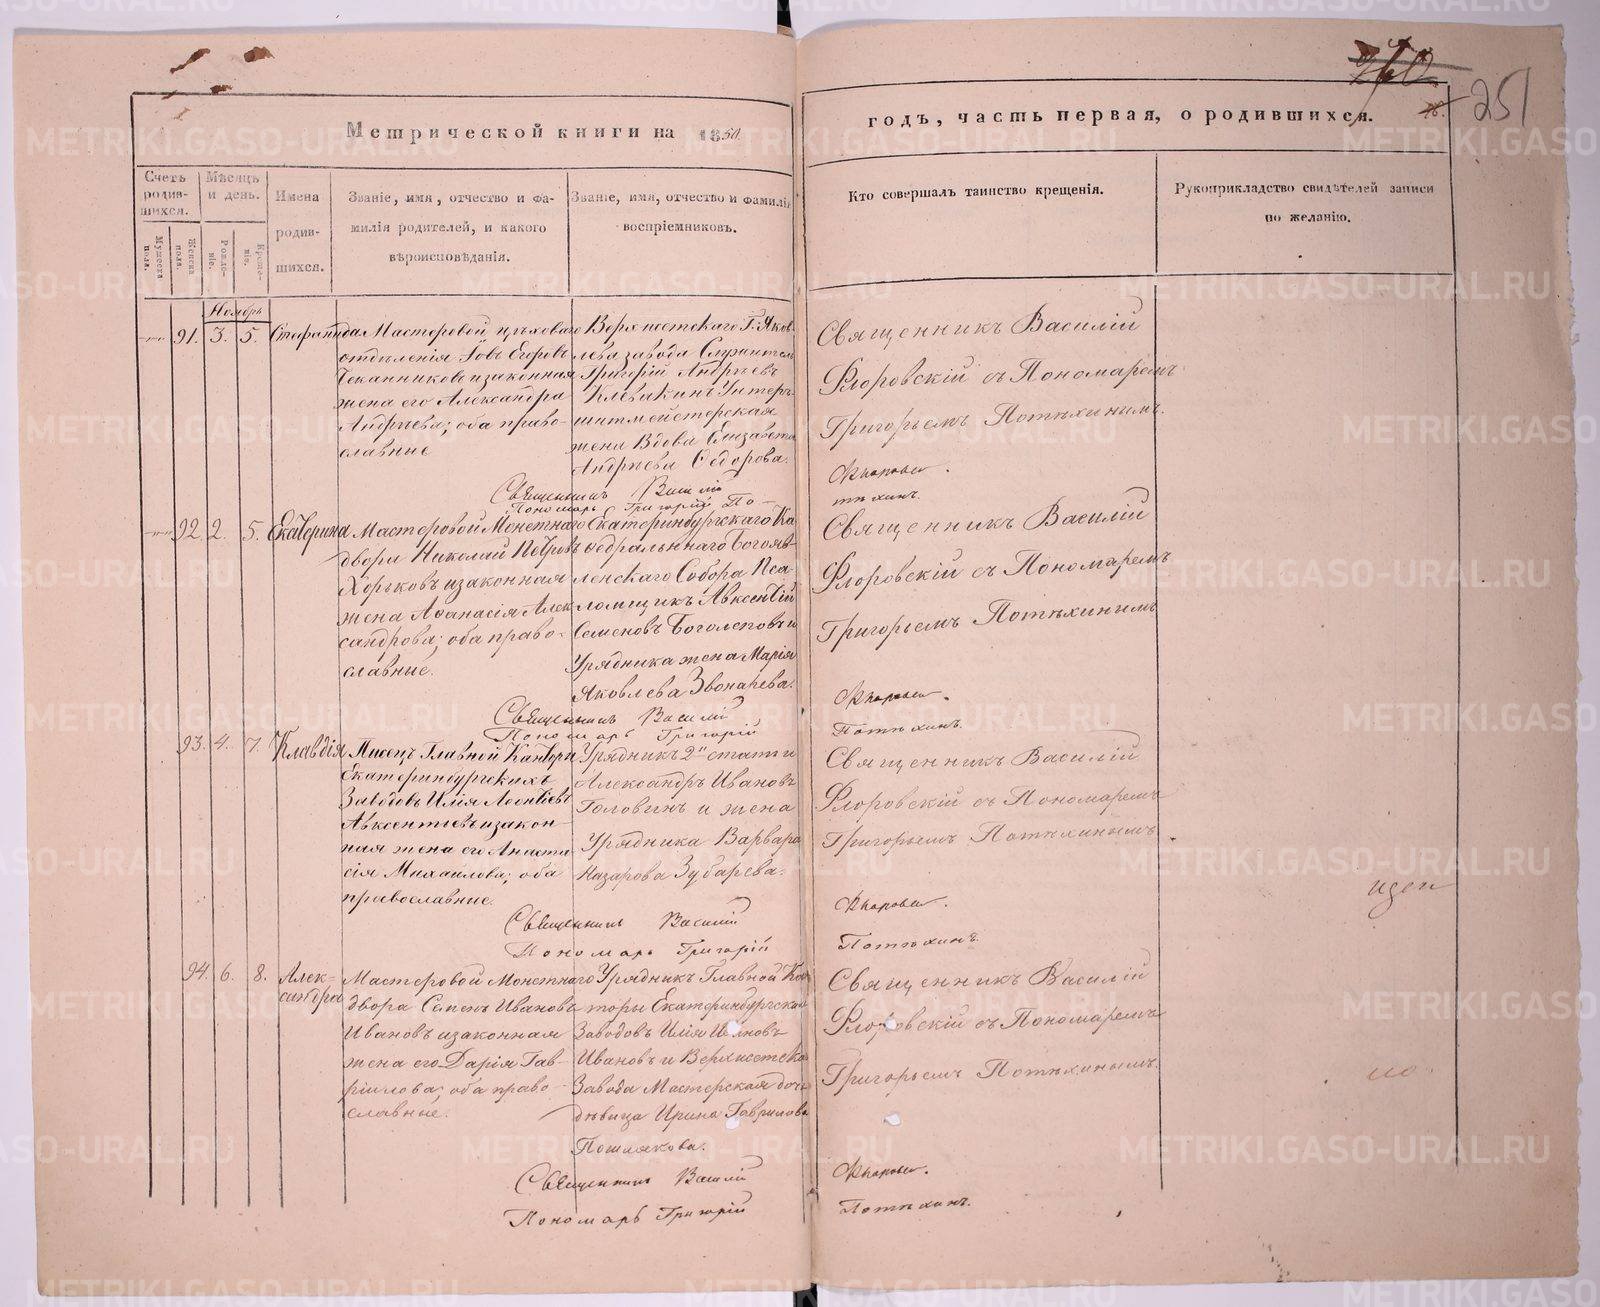 260
251
Метрической книги на 1850.
годъ, часть первая, о родившихся.
Счетъ родившихся.
Мужеска пола.
Женска пола.
Мѣсяцъ и день.
Рожденіе.
Крещеніе.
Имена родившихся.
Званіе, имя, отчество и фамилія родителей, и какого вѣроисповѣданія.
Званіе, имя, отчество и фамилія воспріемниковъ.
Кто совершалъ таинство крещенія.
Рукоприкладство свидѣтелей записи по желанію.
Ноябрь
91. 3. 5. Стефанида
Мастеровой цѣховаго
отдѣленія Іовъ Егоровъ
Чеканниковъ и законная
жена его Александра
Андреева; оба право-
славные
Верхисетскаго Г. Яков-
лева завода Служитель
Григорій Андреевъ
Клевакинъ Унтеръ-
шитмейстерская
жена Вдова Елизавета
Андреева Ѳедорова.
Священникъ Василій
Флоровскій съ Пономаремъ
Григорьемъ Потѣхинымъ.
Священникъ Василій Флоровскій.
Пономарь Григорій Потѣхинъ.
92. 2. 5. Екатерина
Мастеровой Монетнаго
двора Николай Петровъ
Хорьковъ и законная
жена Аѳанасія Алек-
сандрова; оба право-
славные.
Екатеринбургскаго Ка-
ѳедральнаго Богояв-
ленскаго Собора Пса-
ломщикъ Авксентій
Семеновъ Боголеповъ и
Урядника жена Марія
Яковлева Звонарева.
Священникъ Василій
Флоровскій съ Пономаремъ
Григорьемъ Потѣхинымъ
Священникъ Василій Флоровскій.
Пономарь Григорій Потѣхинъ.
93. 4. 7. Клавдія
Писецъ Главной Конторы
Екатеринбургскихъ
Заводовъ Илія Леонтіевъ
Авксентьевъ и закон-
ная жена его Анаста-
сія Михаилова; оба
православные.
Урядникъ 2й статьи
Александръ Ивановъ
Головинъ и жена
Урядника Варвара
Назарова Зубарева.
Священникъ Василій
Флоровскій съ Пономаремъ
Григорьемъ Потѣхинымъ.
Священникъ Василій Флоровскій.
Пономарь Григорій Потѣхинъ.
94. 6. 8. Алек-
сандра
Мастеровой Монетнаго
двора Семенъ Ивановъ
Ивановъ и законная
жена его Дарія Гав-
ріилова; оба право-
славные.
Урядникъ Главной Кон-
торы Екатеринбургскихъ
Заводовъ Илія Ивановъ
Ивановъ и Верхисетскаго
Завода Мастерская дочь
дѣвица Ирина Гаврилова
Священникъ Василій
Флоровскій съ Пономаремъ
Григорьемъ Потѣхинымъ.
Священникъ Василій Флоровскій.
Пономарь Григорій Потѣхинъ.
METRIKI.GASO-URAL.RU